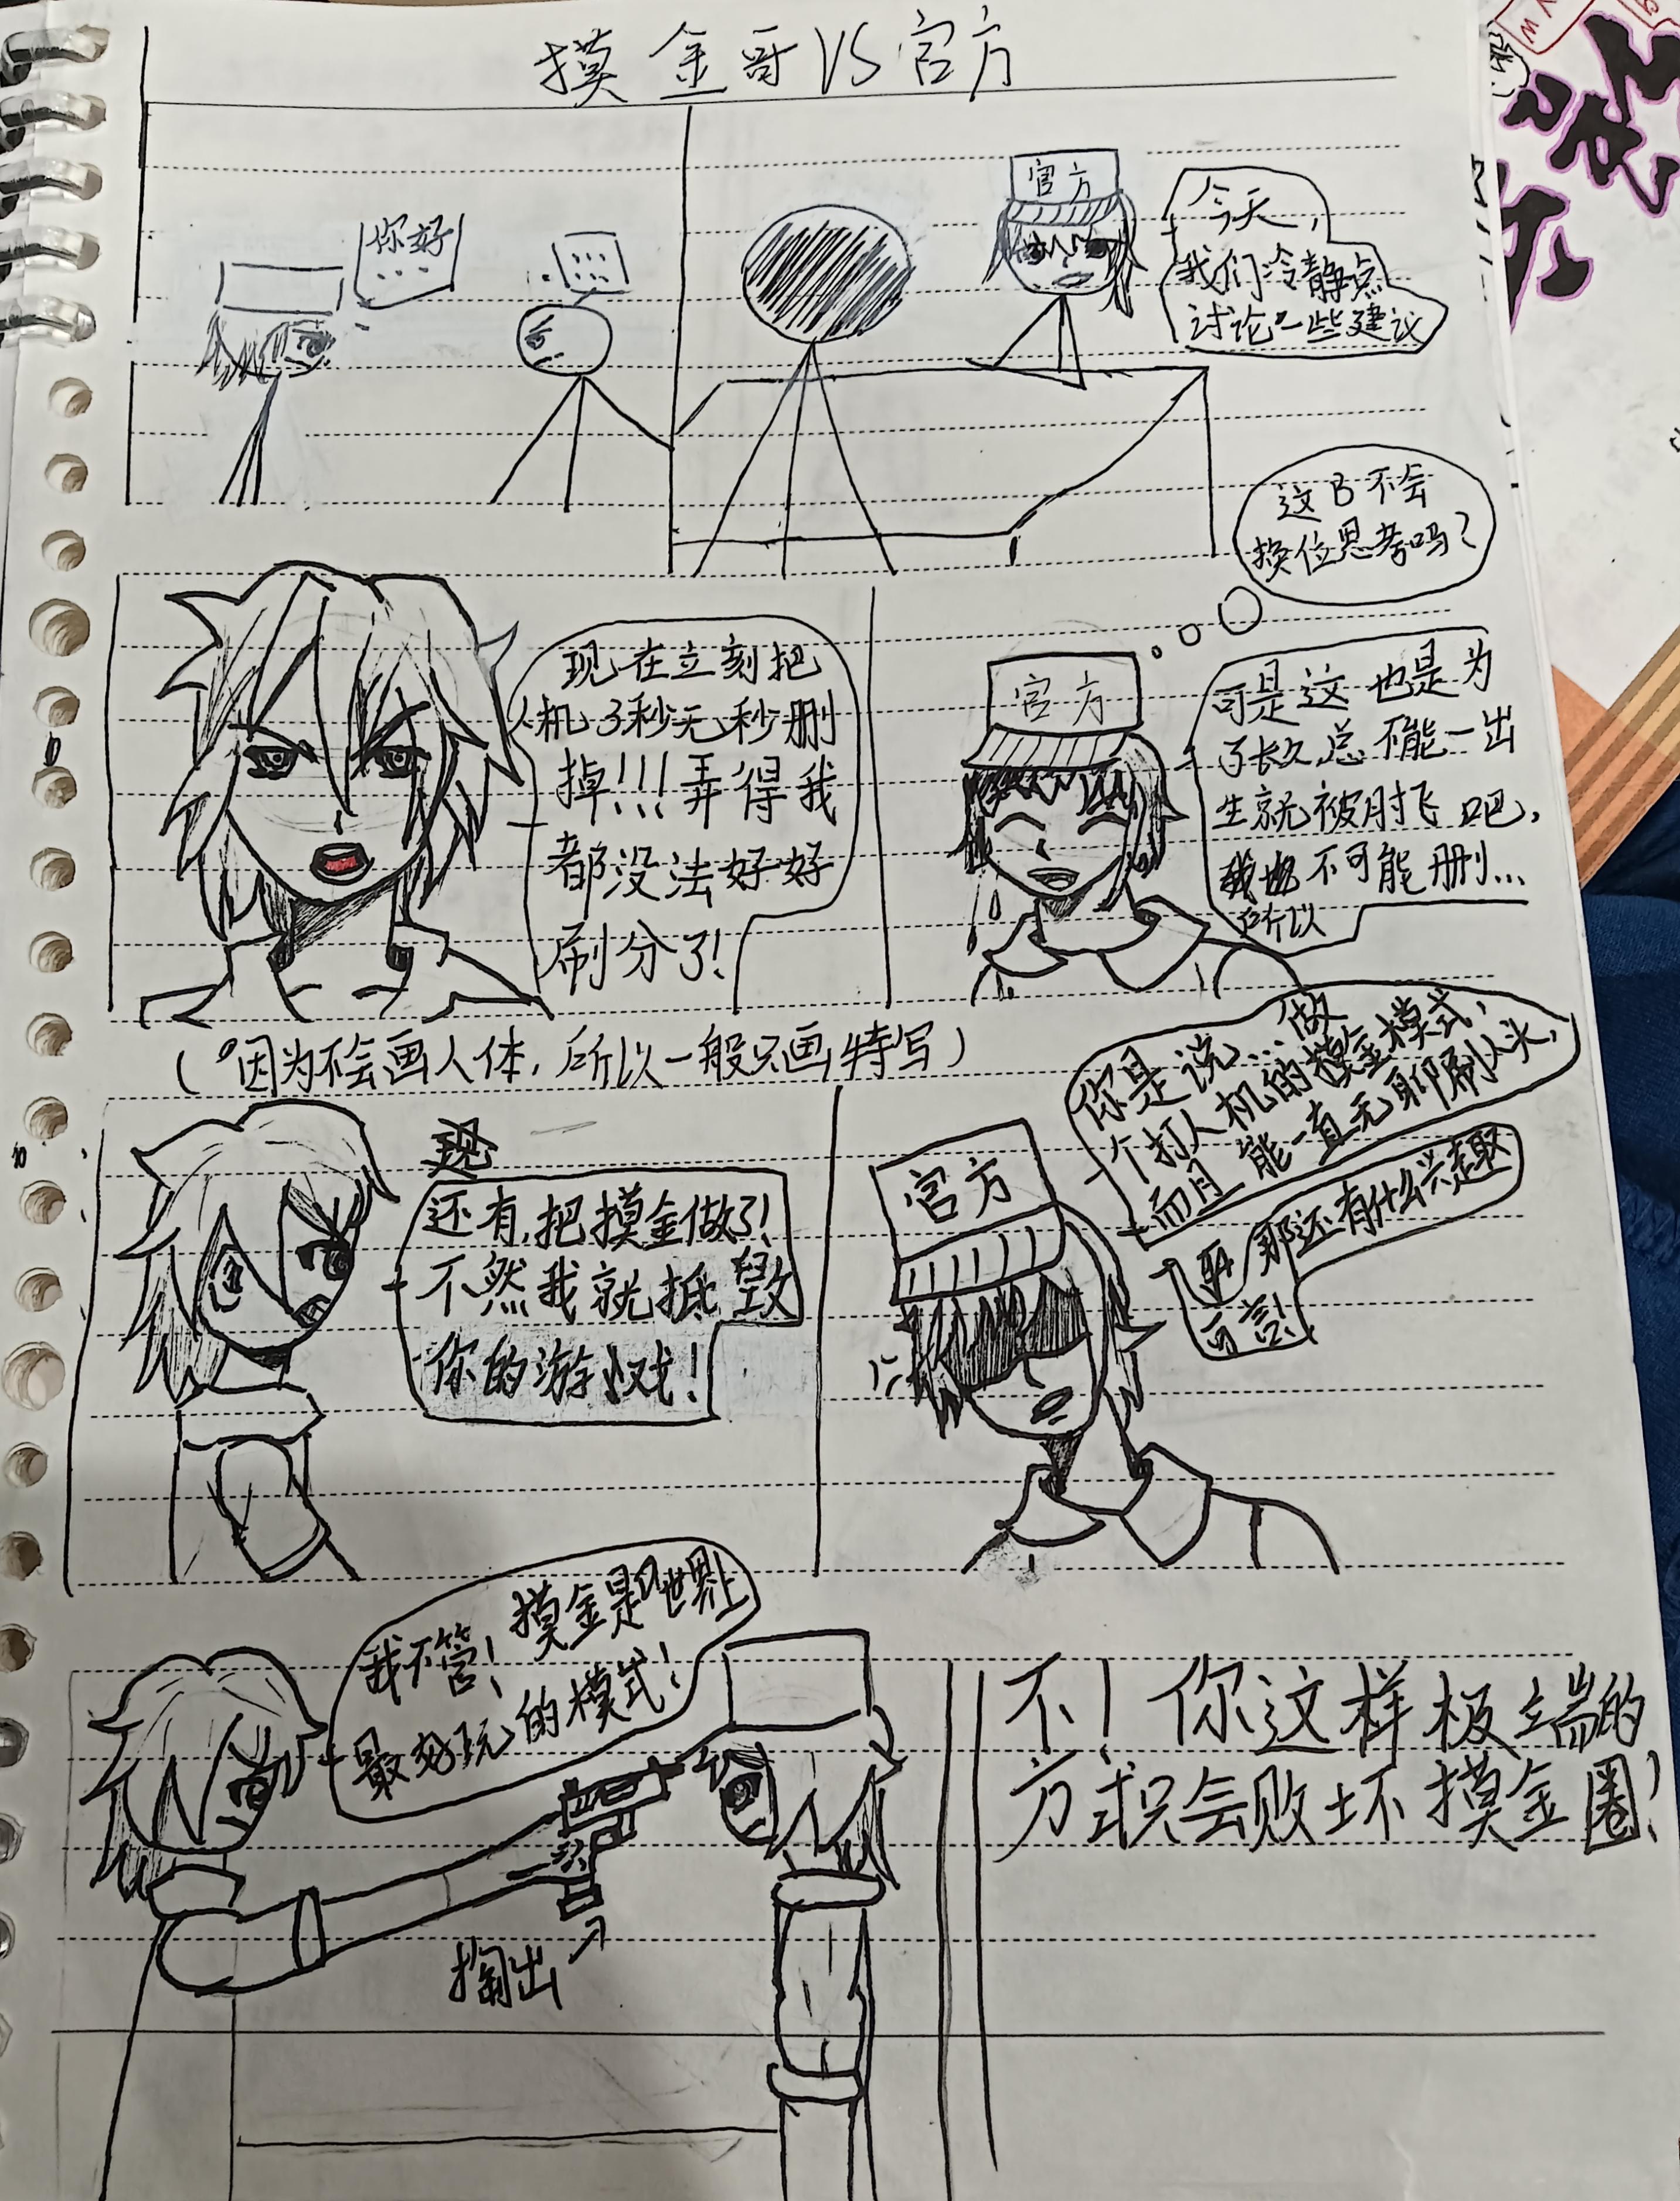 摸金哥VS官方
你好
...
......
官方
今天，
我们冷静点
讨论一些建议
现在立刻把
人机3秒无秒删
掉!!!弄得我
都没法好好
刷分了!
这B不会
换位思考吗?
官方
可是这也是为
了长久总不能一出
生就被肘飞吧，
我也不可能删...
所以
(因为不会画人体，所以一般只画特写)
还有，把摸金做了!
不然我就抵毁
你的游戏!
官方
你是说...做
个打人机的摸金模式，
而且能一直无聊刷人头，
那还有什么兴趣
可言!
我不管!摸金是世界上
最好玩的模式!
掏出
不!你这样极端的
方式只会败坏摸金圈!